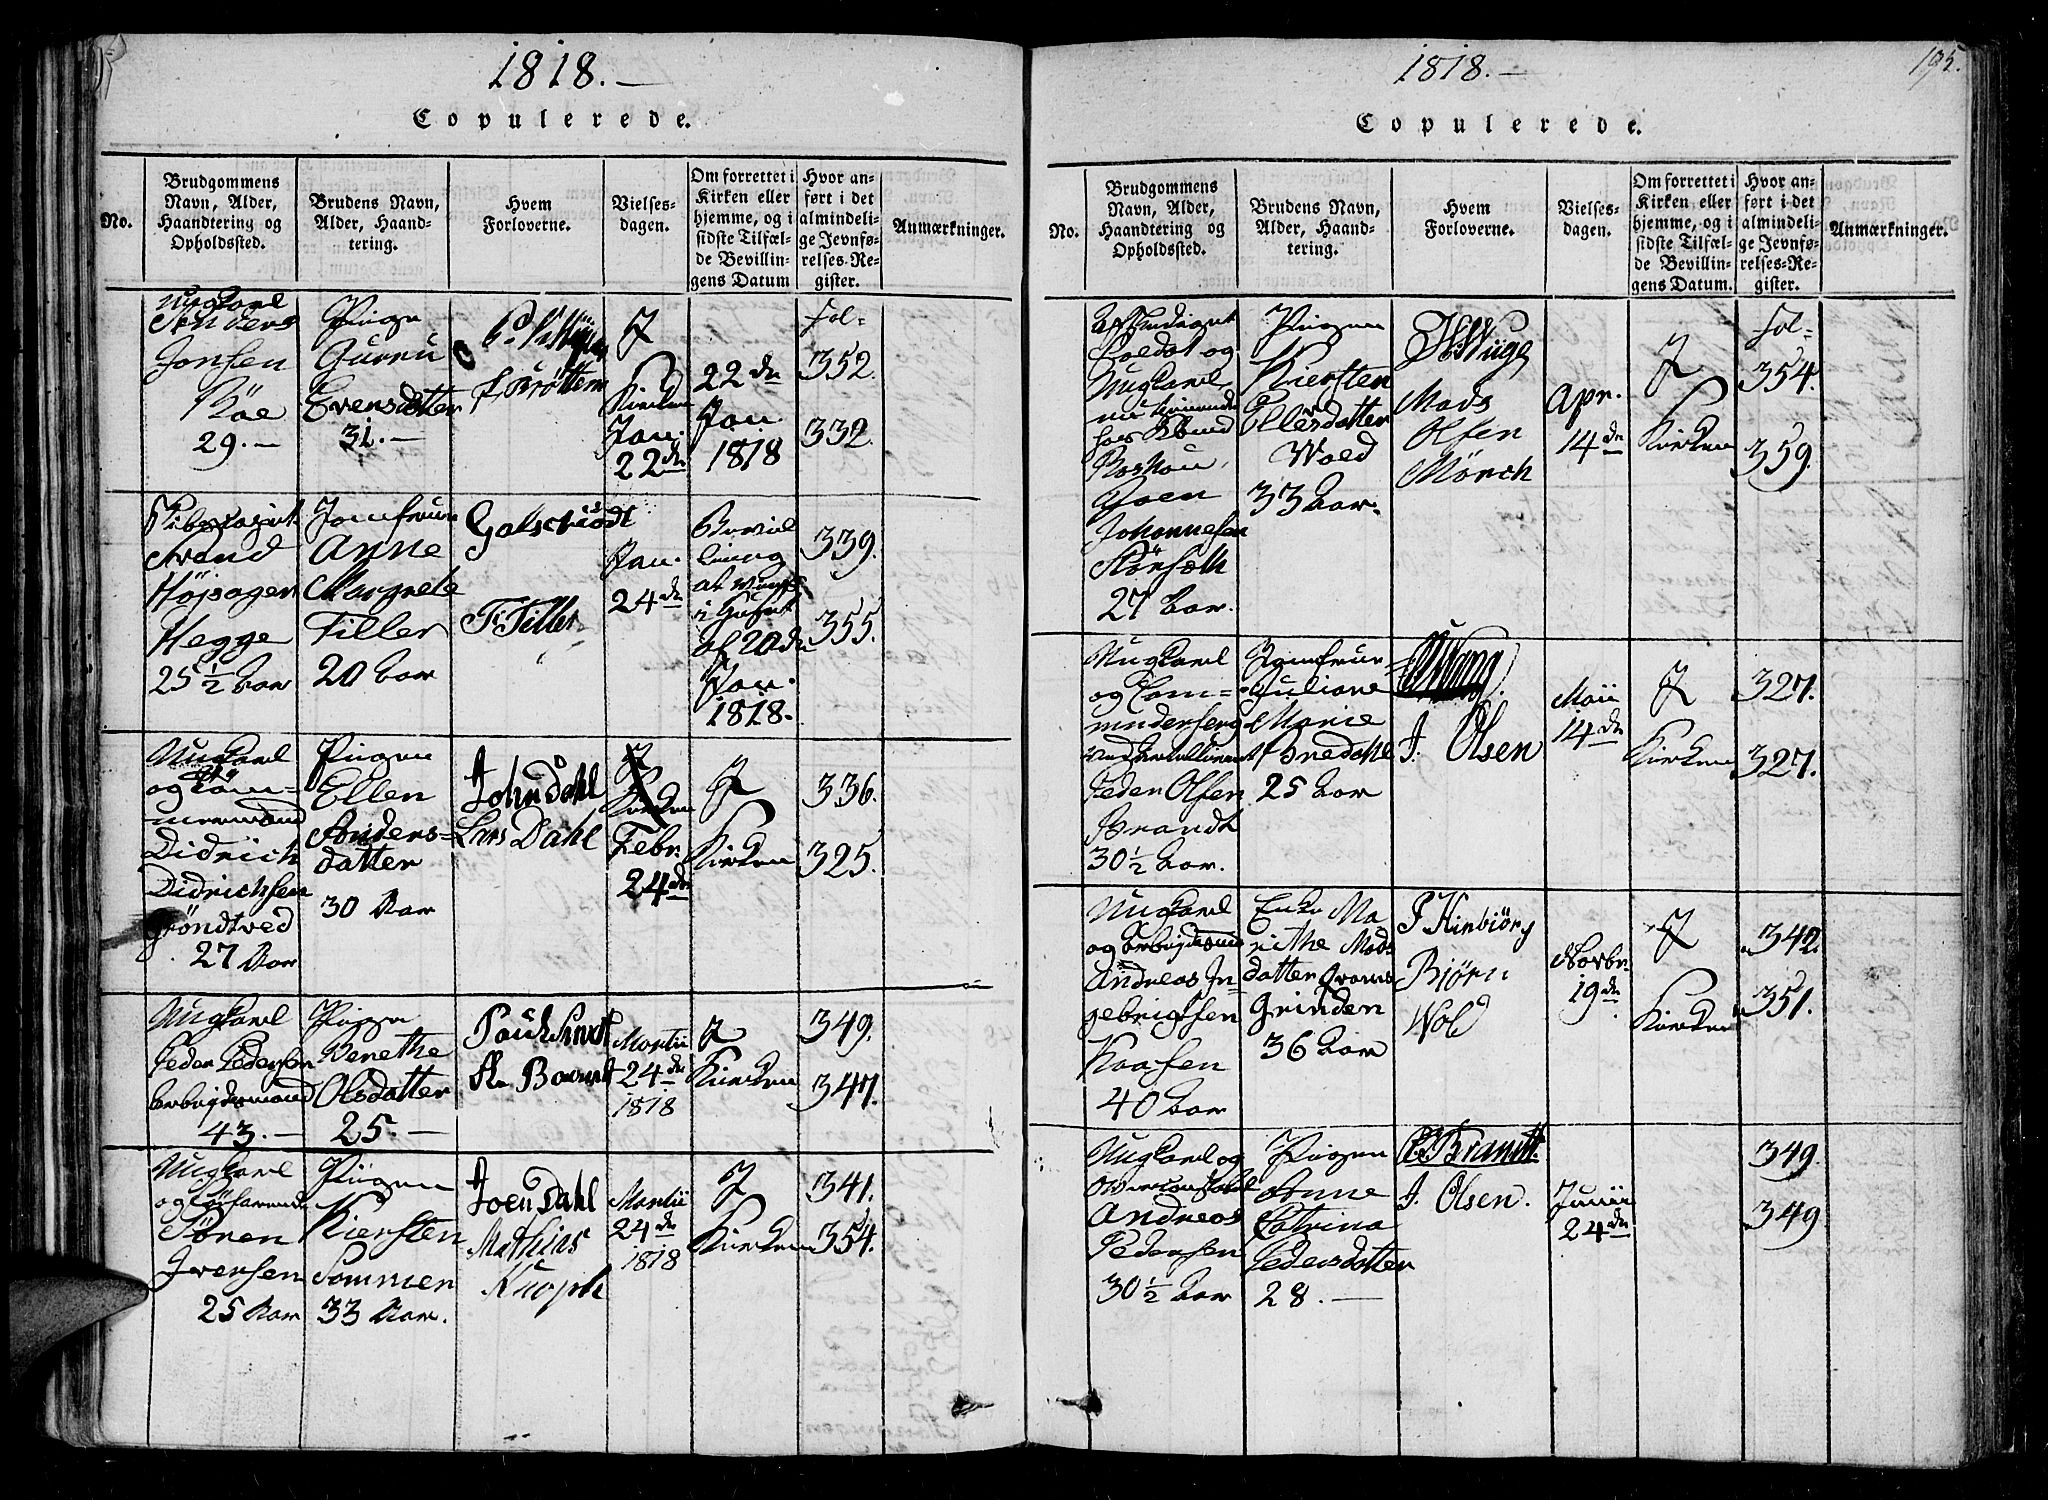 1818.
Copulerede.
No.
Brudgommens
Navn, Alder,
Haandtering og
Opholdssted.
Brudens Navn,
Alder, Haand-
tering.
Hvem
Forloverne.
Vielses-
dagen.
Om forrettet i
Kirken eller
hjemme, og i
sidste Tilfæl-
de Bevillin-
gens Datum
Hvor an-
ført i det
almindeli-
ge Jevnfø-
relses-Re-
gister.
Anmærkninger.
Ungkarl
Anders
Jonsen
Röe
29.
Pigen
Guru
Evensdatter
31.
Bröttem
J
Kirken
Jan.
22de
22de
Jan.
1818
Fol-
352.
332.
Svend
Höjsagen
Hegge
25 1/2 Aar
Jomfrue
Anne
Margrete
Tiller
20 Aar
Galschiödt
F. Tiller
Jan.
24de
Bevil
ling
i Huset
af 20de
Jan.
1818.
339.
355.
Ungkarl
og Töm-
mermand
Didrich
Didrichsen
Gröndtved
27 Aar
Pigen
Ellen
Anders-
datter
30 Aar
John Dahl
Lars Dahl
J
Kirken
Febr.
24de
J
Kirken
336.
325.
Ungkarl
Peder Pedersen
Arbejdsmand
43.
Pigen
Berethe
Olsdatter
25.
Martii
24de
1818
J
Kirken
349.
347.
Ungkarl
og
Sören
Iversen
25 Aar
Pigen
Kiersten
Sommer
33 Aar.
Joen Dahl
Mathias
Knoph
Martii
24de
1818
J
Kirken
341.
354.
1818.
195.
Copulerede.
No.
Brudgommens
Navn, Alder,
Haandtering og
Opholdssted.
Brudens Navn,
Alder, Haand-
tering.
Hvem
Forloverne.
Vielses-
dagen.
Om forrettet i
Kirken eller
hjemme, og i
sidste Tilfæl-
de Bevillin-
gens Datum.
Hvor an-
ført i det
almindeli-
ge Jevnfø-
relses-Re-
gister.
Anmærkninger.
Afskediget
Soldat og
Ungkarl
Johannesen
27 Aar.
Pigen
Kiersten
Ellesdatter
Wold
33 Aar.
Mads
Olsen
Mörch
Apr.
14de
J
Kirken
Fol-
354.
359.
Ungkarl
og
Peder Olsen
Brandt
30 1/2 Aar.
Jomfrue
Juliane
Marie
Bredahl
25 Aar
J. Olsen
Maii
14de
J
Kirken
327.
327.
Ungkarl
og Arbejdsmand
Andreas In-
gebrigtsen
Kaasen
40 Aar
Enke Ma
rithe Mads
datter
Grinden
36 Aar
Björn
Wold
Novbr.
19de
J
Kirken
342.
351.
Ungkarl og
Andreas
Pedersen
30 1/2 Aar
Pigen
Anne
Catrina
Pedersdatter
28.
Brandt
J. Olsen.
Junii
24de
349.
349